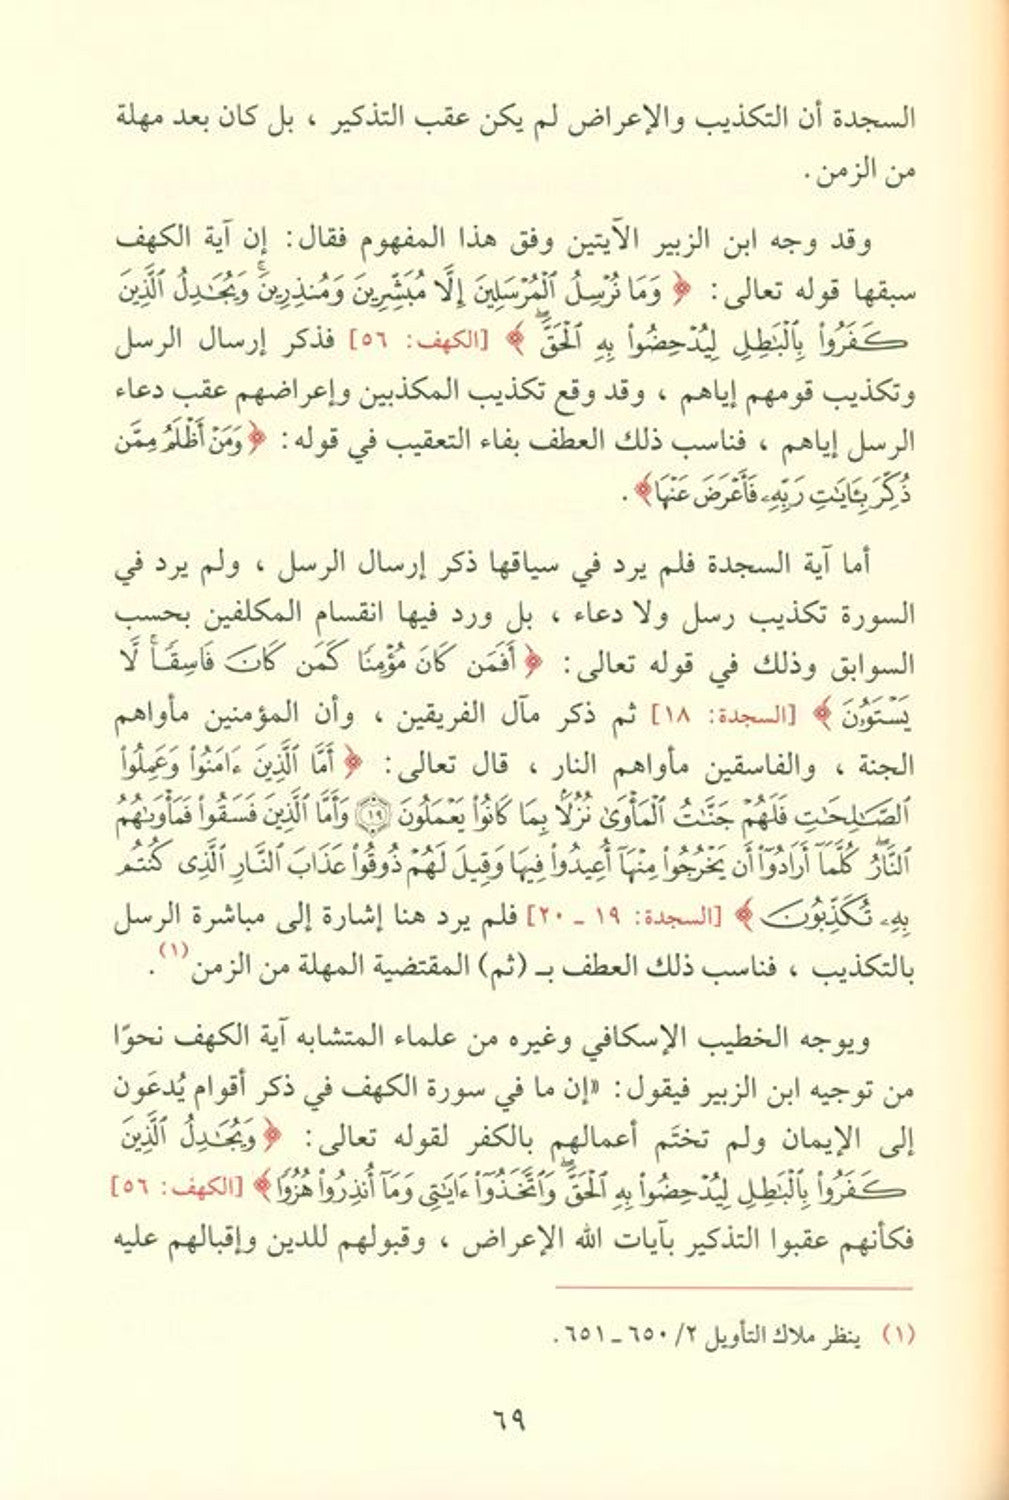 السجدة أن التكذيب والإعراض لم يكن عقب التذكير ، بل كان بعد مهلة
من الزمن .
وقد وجه ابن الزبير الآيتين وفق هذا المفهوم فقال: إن آية الكهف
سبقها قوله تعالى: ﴿ وَمَا نُرْسِلُ ٱلْمُرْسَلِينَ إِلَّا مُبَشِّرِينَ وَمُنذِرِينَ ۚ وَيُجَٰدِلُ ٱلَّذِينَ
كَفَرُوا۟ بِٱلْبَٰطِلِ لِيُدْحِضُوا۟ بِهِ ٱلْحَقَّ ۖ ﴾ [الكهف: ٥٦] فذكر إرسال الرسل
وتكذيب قومهم إياهم ، وقد وقع تكذيب المكذبين وإعراضهم عقب دعاء
الرسل إياهم ، فناسب ذلك العطف بفاء التعقيب في قوله: ﴿ وَمَنْ أَظْلَمُ مِمَّن
ذُكِّرَ بِـَٔايَٰتِ رَبِّهِۦ فَأَعْرَضَ عَنْهَا﴾ .
أما آية السجدة فلم يرد في سياقها ذكر إرسال الرسل ، ولم يرد في
السورة تكذيب رسل ولا دعاء ، بل ورد فيها انقسام المكلفين بحسب
السوابق وذلك في قوله تعالى: ﴿ أَفَمَن كَانَ مُؤْمِنًا كَمَن كَانَ فَاسِقًا ۚ لَّا
يَسْتَوُۥنَ ﴾ [السجدة: ١٨] ثم ذكر مآل الفريقين ، وأن المؤمنين مأواهم
الجنة ، والفاسقين مأواهم النار ، قال تعالى: ﴿ أَمَّا ٱلَّذِينَ ءَامَنُوا۟ وَعَمِلُوا۟
ٱلصَّٰلِحَٰتِ فَلَهُمْ جَنَّٰتُ ٱلْمَأْوَىٰ نُزُلًۢا بِمَا كَانُوا۟ يَعْمَلُونَ ۝١٩ وَأَمَّا ٱلَّذِينَ فَسَقُوا۟ فَمَأْوَىٰهُمُ
ٱلنَّارُ ۖ كُلَّمَآ أَرَادُوٓا۟ أَن يَخْرُجُوا۟ مِنْهَآ أُعِيدُوا۟ فِيهَا وَقِيلَ لَهُمْ ذُوقُوا۟ عَذَابَ ٱلنَّارِ ٱلَّذِى كُنتُم
بِهِۦ تُكَذِّبُونَ ﴾ [السجدة: ١٩ ـ ٢٠] فلم يرد هنا إشارة إلى مباشرة الرسل
بالتكذيب ، فناسب ذلك العطف بـ (ثم) المقتضية المهلة من الزمن(١) .
ويوجه الخطيب الإسكافي وغيره من علماء المتشابه آية الكهف نحوًا
من توجيه ابن الزبير فيقول: «إن ما في سورة الكهف في ذكر أقوام يُدعَون
إلى الإيمان ولم تختَم أعمالهم بالكفر لقوله تعالى: ﴿ وَيُجَٰدِلُ ٱلَّذِينَ
كَفَرُوا۟ بِٱلْبَٰطِلِ لِيُدْحِضُوا۟ بِهِ ٱلْحَقَّ ۖ وَٱتَّخَذُوٓا۟ ءَايَٰتِى وَمَآ أُنذِرُوا۟ هُزُوًا﴾ [الكهف: ٥٦]
فكأنهم عقبوا التذكير بآيات الله الإعراض ، وقبولهم للدين وإقبالهم عليه
(١) ينظر ملاك التأويل ٢/ ٦٥٠ ـ ٦٥١ .
٦٩